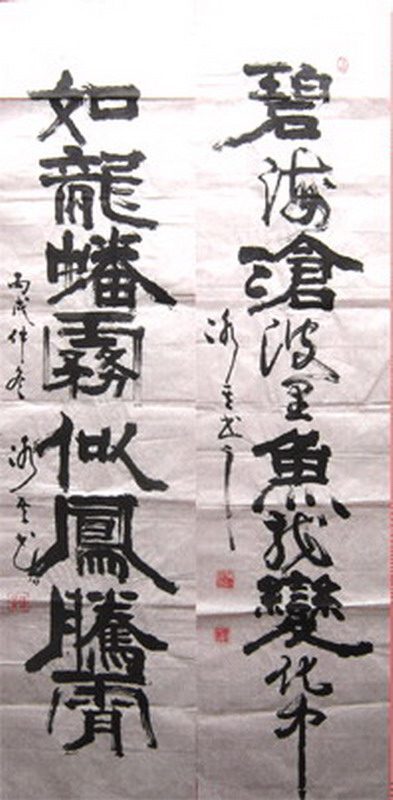 碧海滄波里魚龍變化中
如龍蟠霧似鳳騰霄
丙戌仲冬